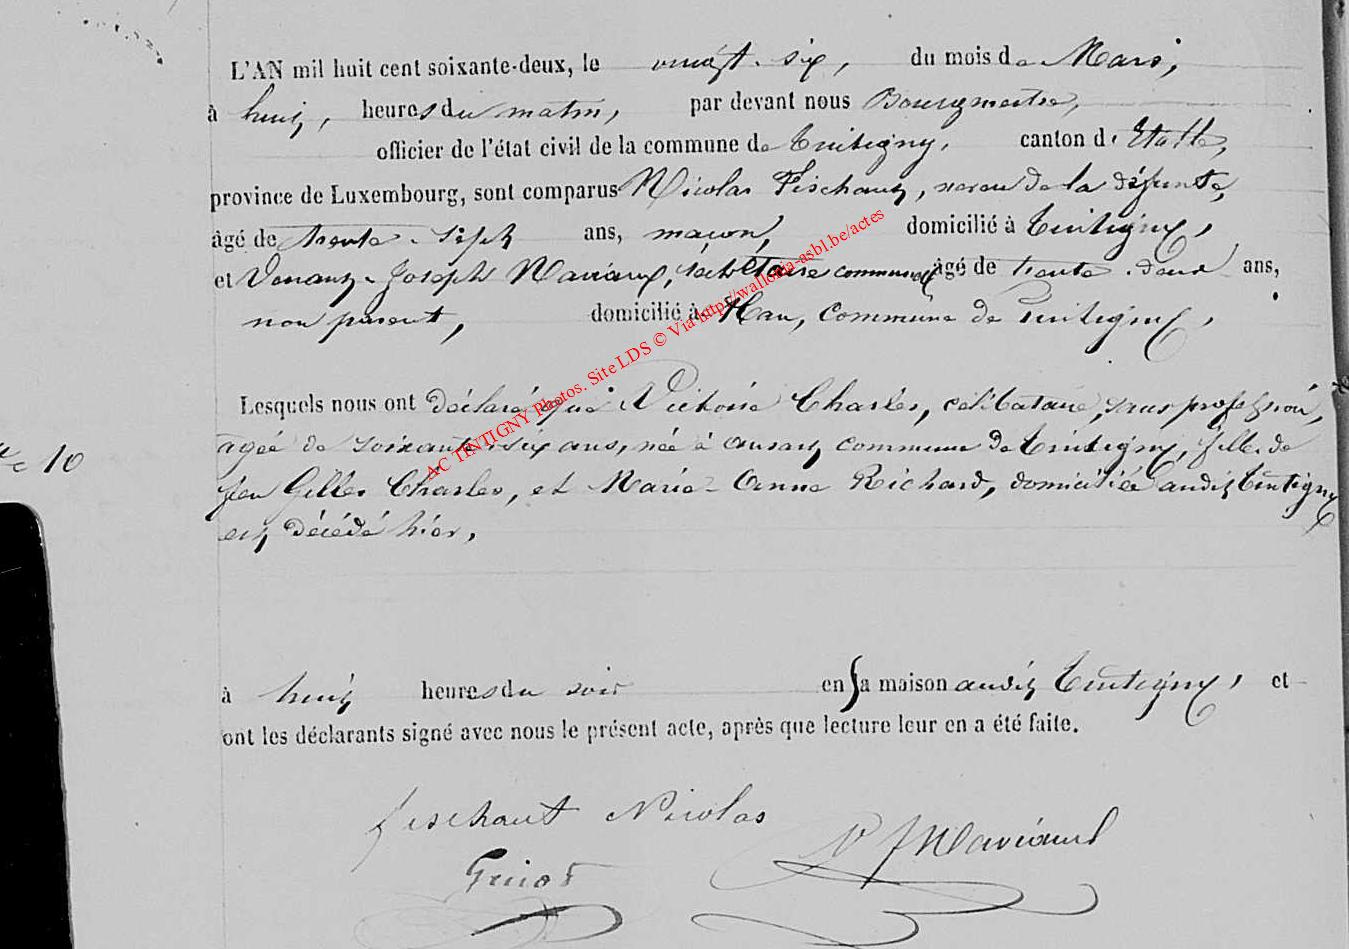 L'AN mil huit cent soixante-deux, le vingt-six, du mois de Mars,
à huit, heures du matin, par devant nous Bourgmestre,
officier de l'état civil de la commune de Tintigny, canton d'Etalle,
province de Luxembourg, sont comparus Nicolas Fischaut, neveu de la défunte,
âgé de trente-sept ans, maçon, domicilié à Tintigny,
et Venant-Joseph Maviaux, secrétaire communal âgé de trente-deux ans,
non parent, domicilié à Han, commune de Tintigny,
Lesquels nous ont déclaré que Victoire Charles, célibataire, sans profession,
agée de soixante-six ans, née à Ansart commune de Tintigny, fille de
feu Gilles Charles, et Marie-Anne Richard, domiciliée audit Tintigny
est décédé hier,
10
à huit heures du soir en sa maison audit Tintigny, et
ont les déclarants signé avec nous le présent acte, après que lecture leur en a été faite.
fischaut Nicolas
V J Maviaux
AC TINTIGNY Photos. Site LDS © Via http://wallonia-asbl.be/actes